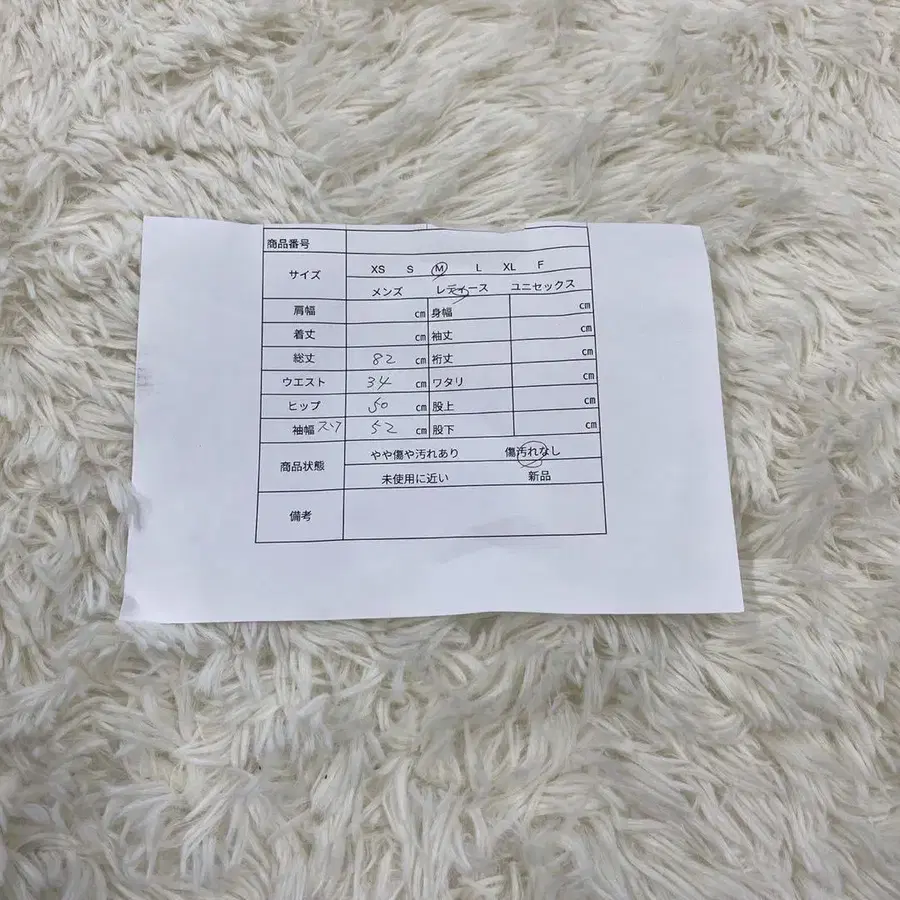 商品番号
サイズ XS S M L XL F
メンズ レディース ユニセックス
肩幅 cm 身幅 cm
着丈 cm 袖丈 cm
総丈 82 cm 裄丈 cm
ウエスト 34 cm ワタリ cm
ヒップ 50 cm 股上 cm
袖幅 スソ 52 cm 股下 cm
商品状態 やや傷や汚れあり 傷汚れなし
未使用に近い 新品
備考